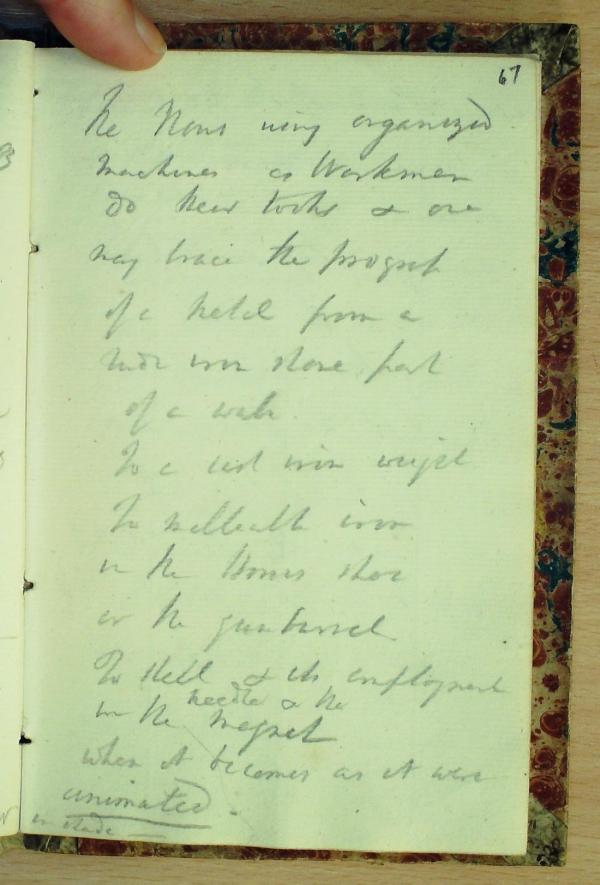 67
the Nous using organized
machines as Workmen
do their tools & one
may trace the progress
of a metal from a
rude iron stone part
of a
To a cast iron
To malleable iron
in the Horses shoe
or the gun barrel
To steel & its employment
in the needle & the
magnet
when it becomes as it were
animated.